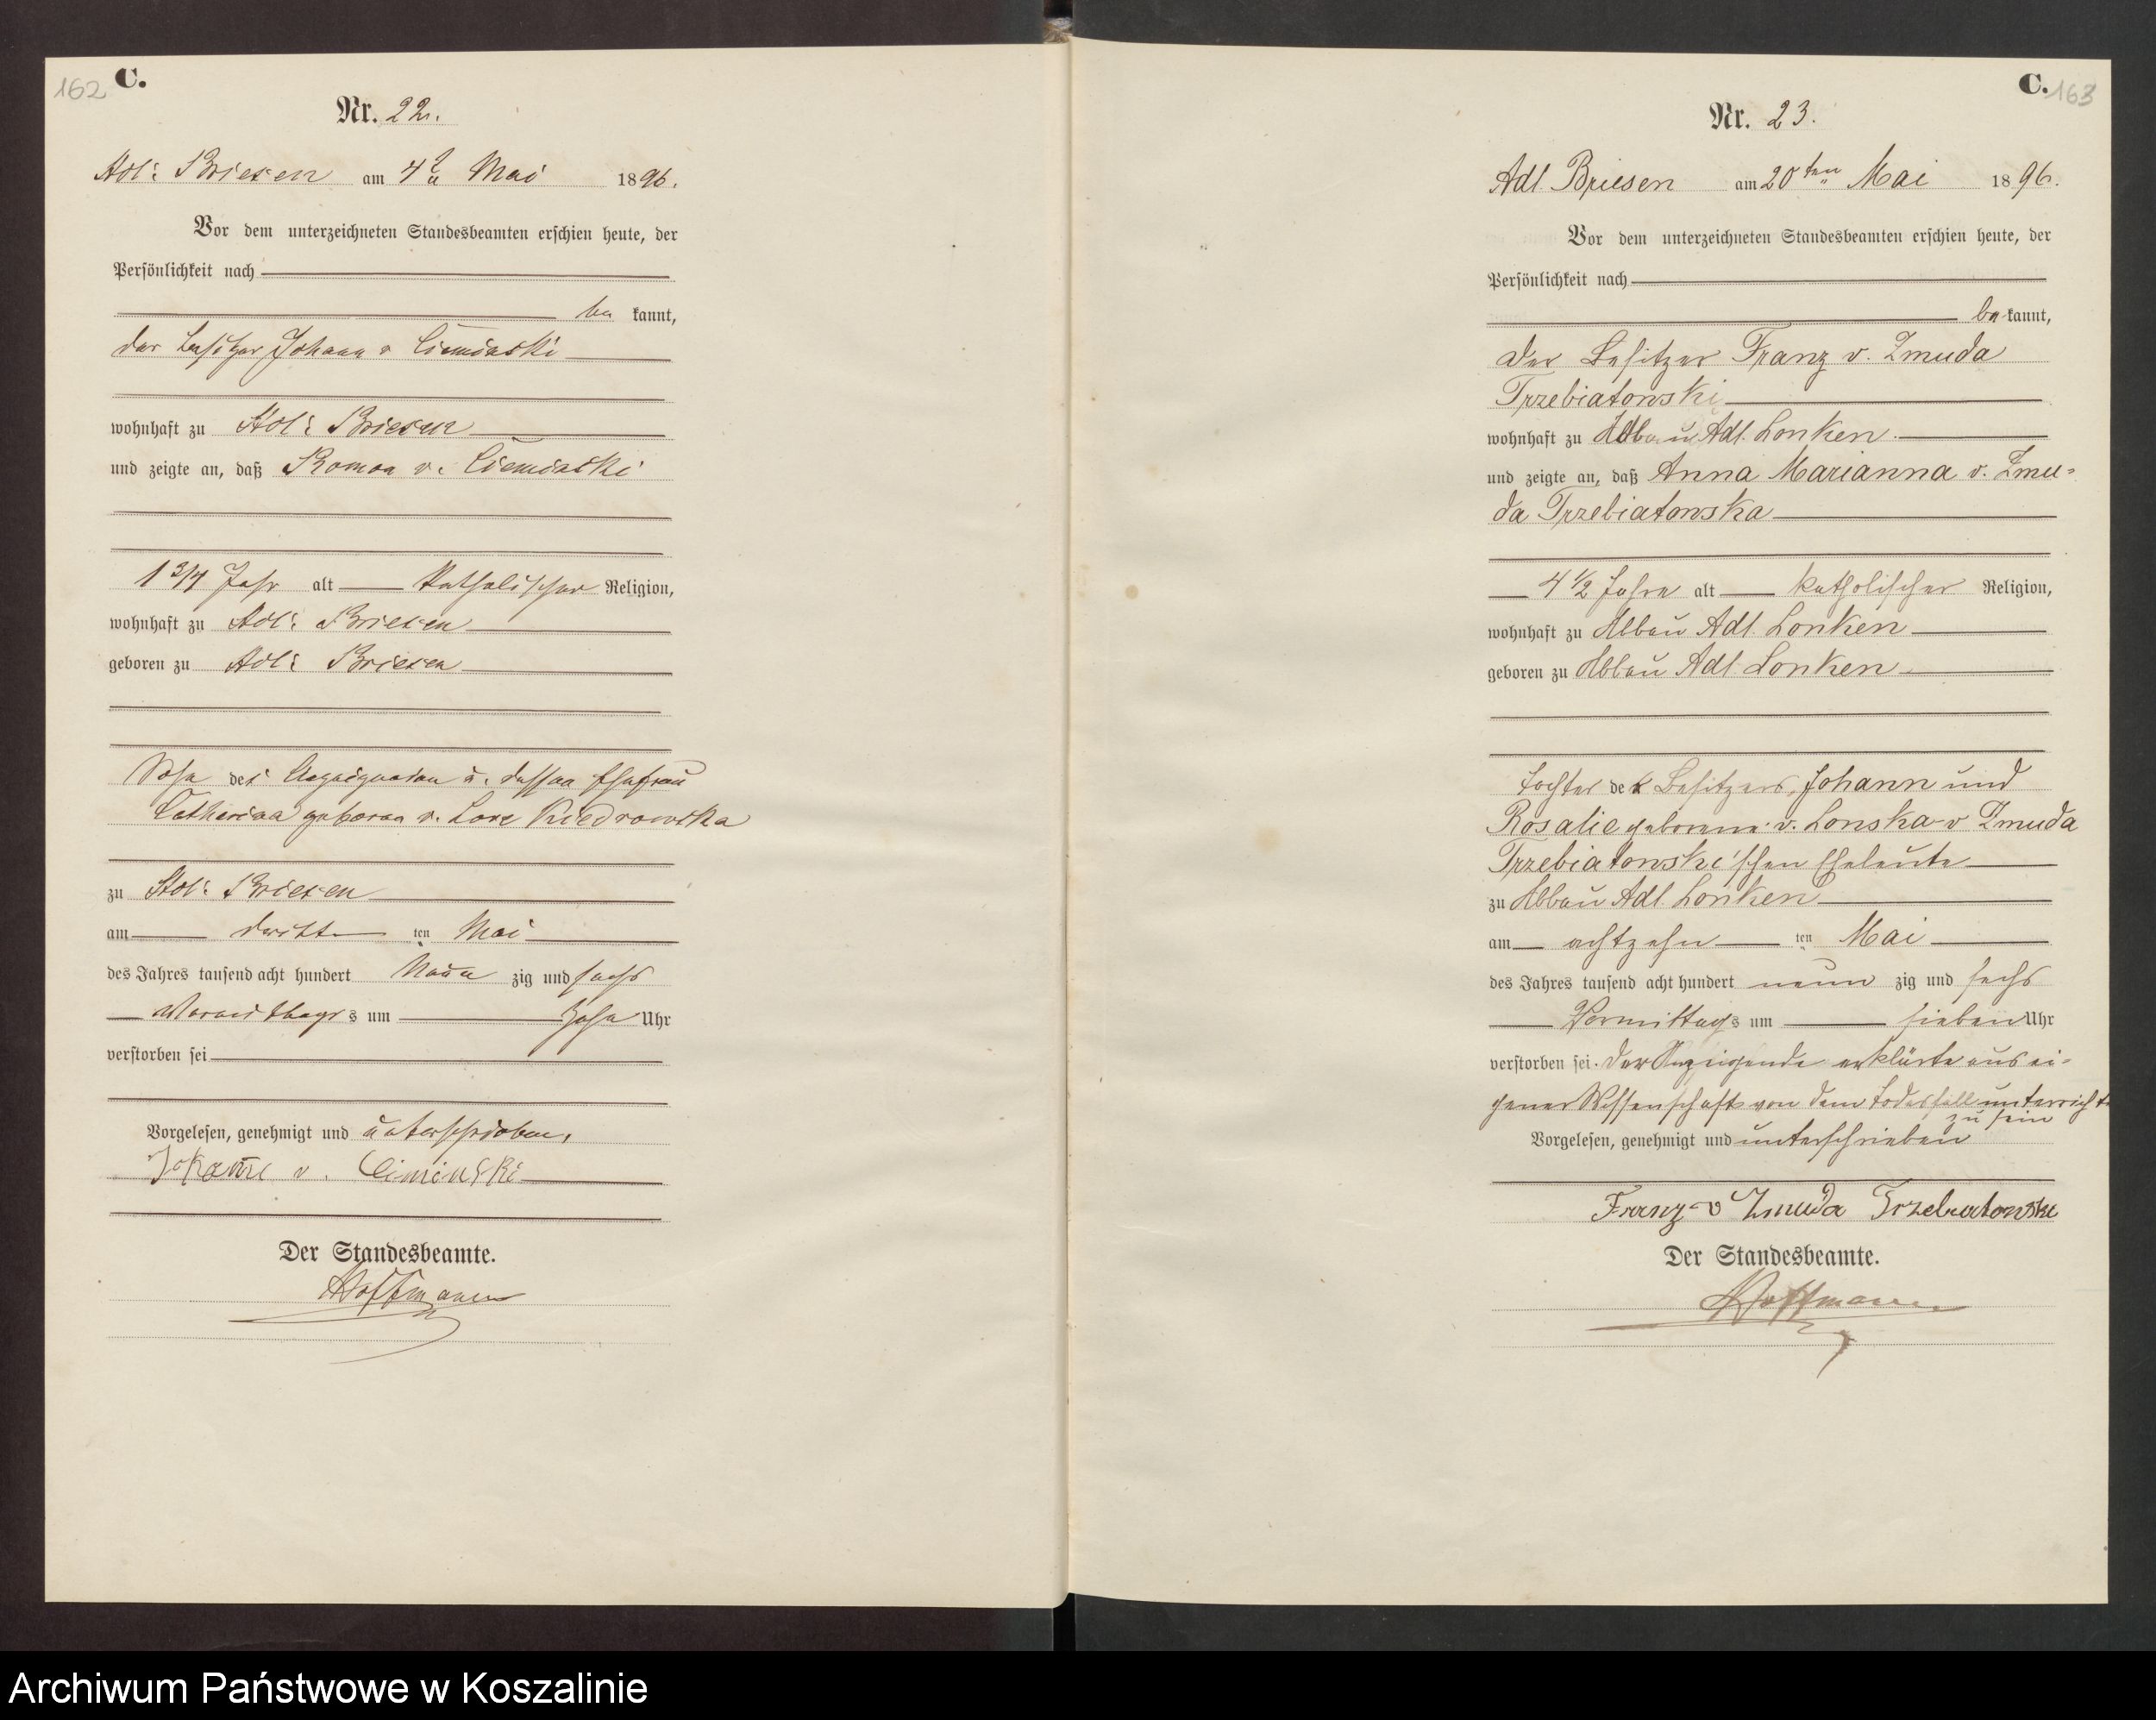 162 C.
Nr. 22.
Adl: Briesen am 4t Mai 1896.
Vor dem unterzeichneten Standesbeamten erschien heute, der
Persönlichkeit nach
be kannt,
der Besitzer Johann v Cieminski
wohnhaft zu Adl: Briesen
und zeigte an, daß Roman v. Cieminski
1 3/4 Jahr alt Katholischer Religion,
wohnhaft zu Adl: Briesen
geboren zu Adl: Briesen
Sohn des Anzeigenden u. dessen Ehefrau
Catharina geboren v. Kiedrowska
zu Adl: Briesen
am dritten ten Mai
des Jahres tausend acht hundert Neun zig und sechs
Vormittags um Zehn Uhr
verstorben sei
Vorgelesen, genehmigt und unterschrieben,
Johann v. Ciminski
Der Standesbeamte.
Hoffmann
C. 163
Nr. 23.
Adl. Briesen am 20ten Mai 1896.
Vor dem unterzeichneten Standesbeamten erschien heute, der
Persönlichkeit nach
be kannt,
der Besitzer Franz v. Zmuda
Trzebiatowski
wohnhaft zu Abbau Adl. Lonken.
und zeigte an, daß Anna Marianna v. Zmu-
da Trzebiatowska
4 1/2 Jahre alt katholischer Religion,
wohnhaft zu Abbau Adl. Lonken
geboren zu Abbau Adl. Lonken
Tochter der Besitzers Johann und
Rosalie geborene v. Lonska v Zmuda
Trzebiatowski'schen Eheleute
zu Abbau Adl. Lonken
am achtzehn ten Mai
des Jahres tausend acht hundert neun zig und sechs
Vormittags um sieben Uhr
verstorben sei. Der Anzeigende erklärte aus ei-
gener Wissenschaft von dem Todesfall unterrichtet
zu sein
Vorgelesen, genehmigt und unterschrieben
Franz v Zmuda Trzebiatowski
Der Standesbeamte.
Hoffmann
Archiwum Państwowe w Koszalinie